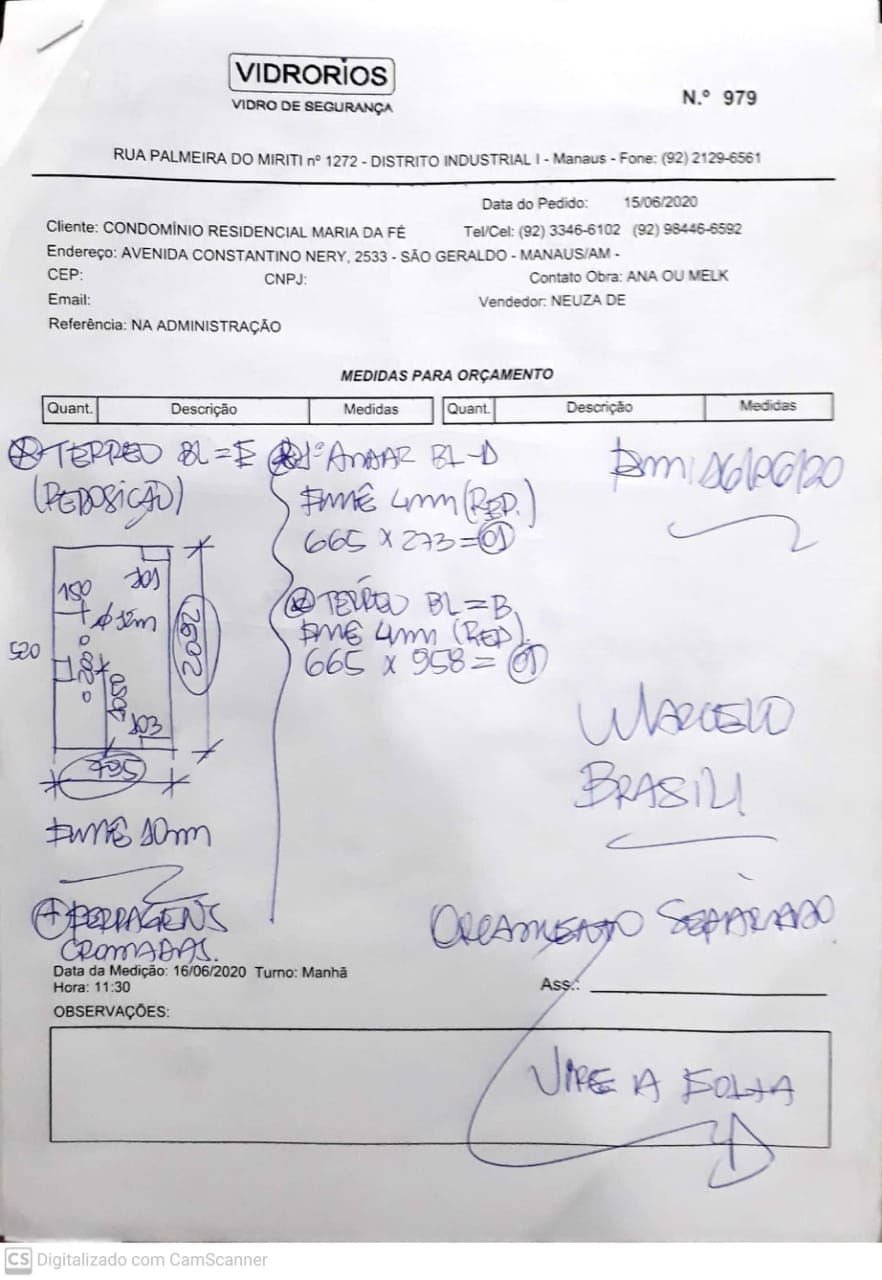 VIDRORIOS
VIDRO DE SEGURANÇA
N.º 979
RUA PALMEIRA DO MIRITI nº 1272 - DISTRITO INDUSTRIAL I - Manaus - Fone: (92) 2129-6561
Data do Pedido: 15/06/2020
Cliente: CONDOMÍNIO RESIDENCIAL MARIA DA FÉ Tel/Cel: (92) 3346-6102 (92) 98446-6592
Endereço: AVENIDA CONSTANTINO NERY, 2533 - SÃO GERALDO - MANAUS/AM -
CEP: CNPJ: Contato Obra: ANA OU MELK
Email: Vendedor: NEUZA DE
Referência: NA ADMINISTRAÇÃO
MEDIDAS PARA ORÇAMENTO
Quant. Descrição Medidas Quant. Descrição Medidas
TERREO BL=E
(REPOSIÇÃO)
150
520
2602
795
10mm
+ FERRAGENS
CROMADAS.
1º ANDAR BL-D
4mm (REP.)
665 x 273 = 01
TERREO BL=B
4mm (REP)
665 x 958 = 01
16/06/20
MARCELO
BRASIL
ORÇAMENTO SEPARADO
Data da Medição: 16/06/2020 Turno: Manhã
Hora: 11:30
Ass.:
OBSERVAÇÕES:
VIRE A FOLHA
CS Digitalizado com CamScanner